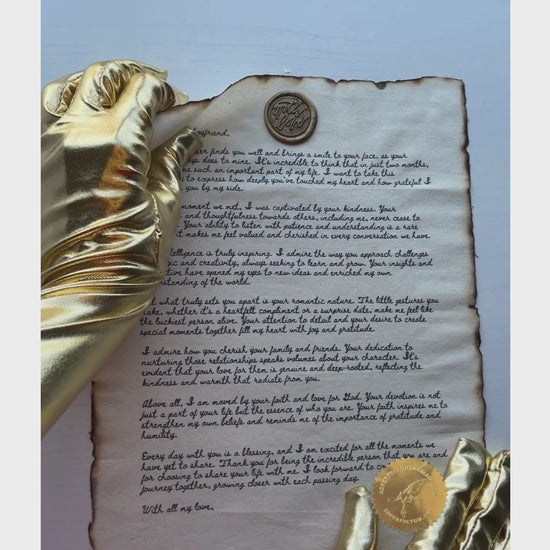 oyfriend,
er finds you well and brings a smile to your face, as your
ys does to mine. It's incredible to think that in just two months,
me such an important part of my life. I want to take this
to express how deeply you've touched my heart and how grateful I
you by my side.
moment we met, I was captivated by your kindness. Your
and thoughtfulness towards others, including me, never cease to
Your ability to listen with patience and understanding is a rare
t makes me feel valued and cherished in every conversation we have.
telligence is truly inspiring. I admire the way you approach challenges
ic and creativity, always seeking to learn and grow. Your insights and
tive have opened my eyes to new ideas and enriched my own
standing of the world.
t what truly sets you apart is your romantic nature. The little gestures you
ake, whether it's a heartfelt compliment or a surprise date, make me feel like
the luckiest person alive. Your attention to detail and your desire to create
special moments together fill my heart with joy and gratitude.
I admire how you cherish your family and friends. Your dedication to
nurturing those relationships speaks volumes about your character. It's
evident that your love for them is genuine and deep-rooted, reflecting the
kindness and warmth that radiate from you.
Above all, I am moved by your faith and love for God. Your devotion is not
just a part of your life but the essence of who you are. Your faith inspires me to
strengthen my own beliefs and reminds me of the importance of gratitude and
humility.
Every day with you is a blessing, and I am excited for all the moments we
have yet to share. Thank you for being the incredible person that you are and
for choosing to share your life with me. I look forward to o
journey together, growing closer with each passing day.
With all my love,